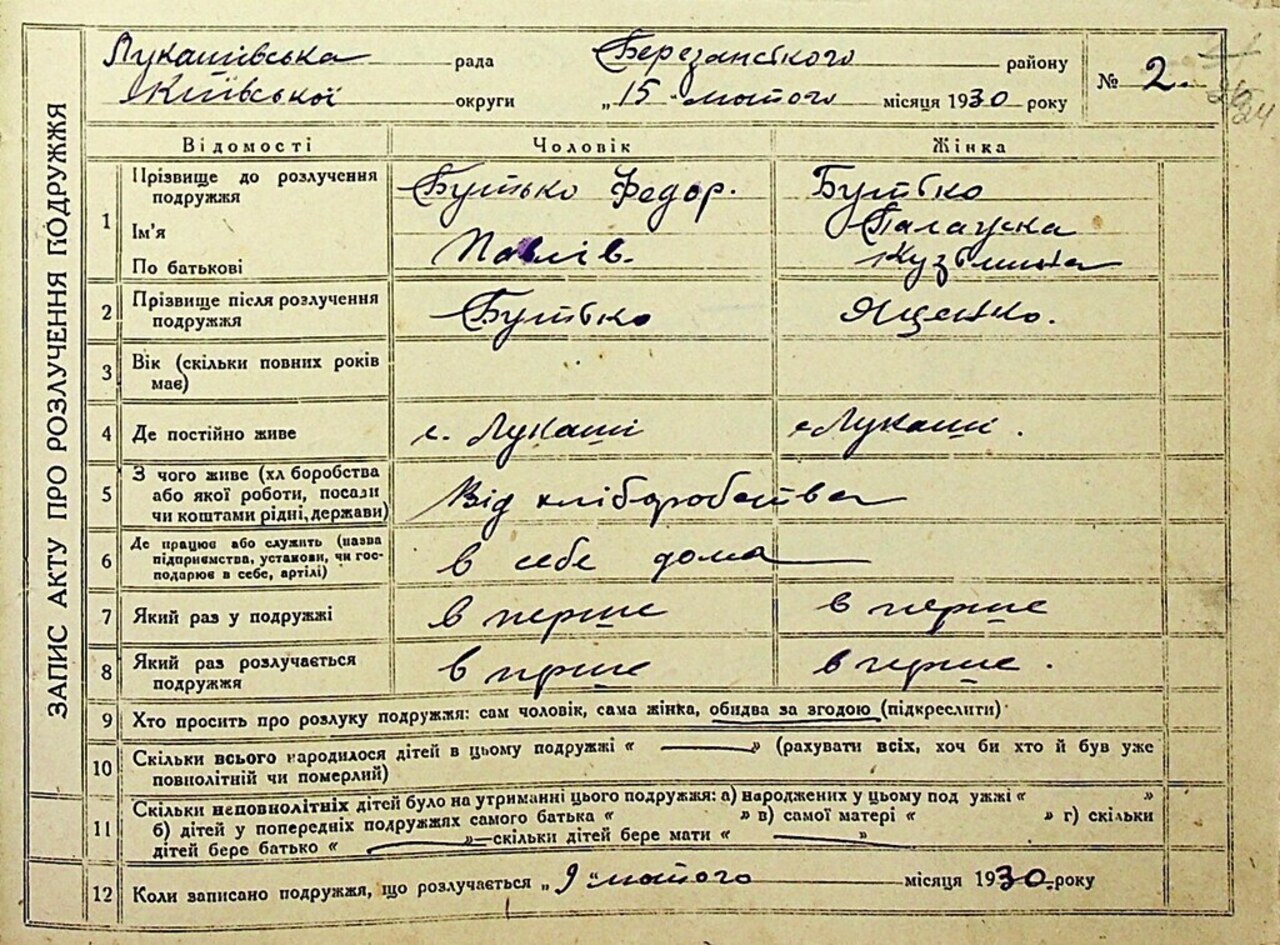 ЗАПИС АКТУ ПРО РОЗЛУЧЕННЯ ПОДРУЖЖЯ
Лукашівська рада Березанського району
Київської округи „15" лютого місяця 1930 року
№ 2.
Відомості Чоловік Жінка
1 Прізвище до розлучення подружжя Бутько Федор. Бутько
Ім'я Палажка
По батькові Павлів. Кузьмівна
2 Прізвище після розлучення подружжя Бутько Ященко.
3 Вік (скільки повних років має)
4 Де постійно живе с. Лукаші с. Лукаші.
5 З чого живе (хл боробства
або якої роботи, посади
чи коштами рідні, держави) Від хліборобства
6 Де працює або служить (назва
підприємства, установи, чи гос-
подарює в себе, артілі) в себе дома
7 Який раз у подружжі в перше в перше
8 Який раз розлучається
подружжя в перше в перше.
9 Хто просить про розлуку подружжя: сам чоловік, сама жінка, обидва за згодою (підкреслити)
10 Скільки всього народилося дітей в цьому подружжі « — » (рахувати всіх, хоч би хто й був уже
повнолітній чи померлий)
11 Скільки неповнолітніх дітей було на утриманні цього подружжя: а) народжених у цьому под ужжі « »
б) дітей у попередніх подружжях самого батька « » в) самої матері « » г) скільки
дітей бере батько « — »—скільки дітей бере мати « — »
12 Коли записано подружжя, що розлучається „9" лютого місяця 1930 року